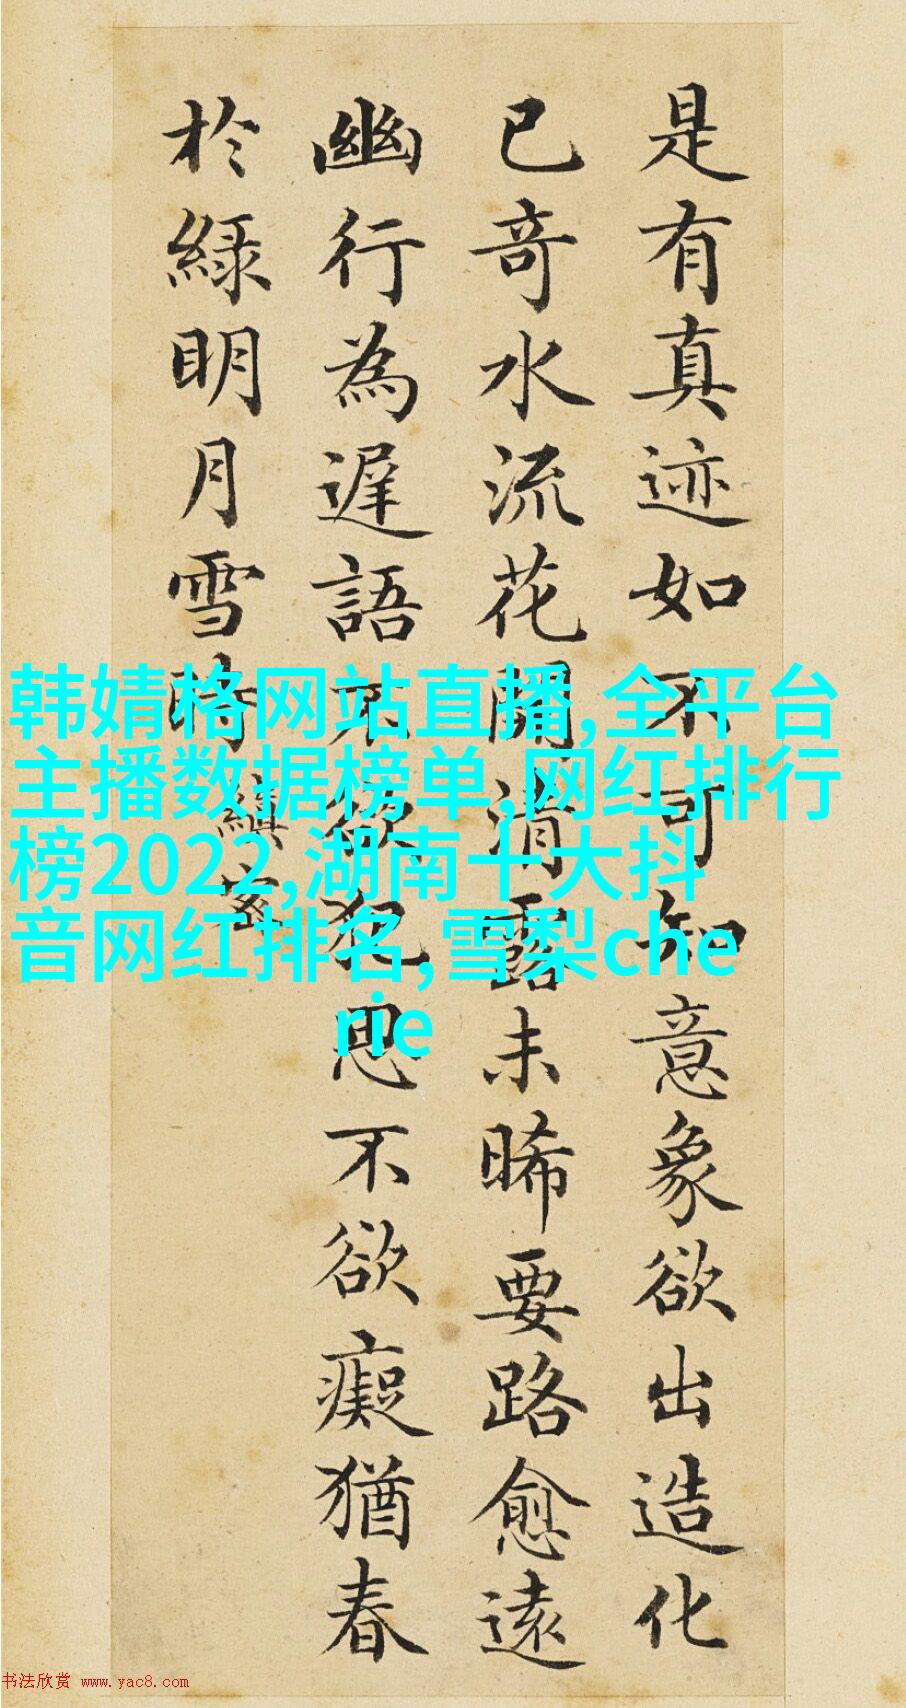 是有真迹如不可知意象欲出造化
已奇水流花開清露未晞要路愈遠
幽行為遲語不欲犯思不欲癡猶春
於綠明月雪時
縝密
韩婧格网站直播,全平台
主播数据榜单,网红排行
榜2022,湖南十大抖
音网红排名,雪梨che
rie
书法欣赏 www.yac8.com